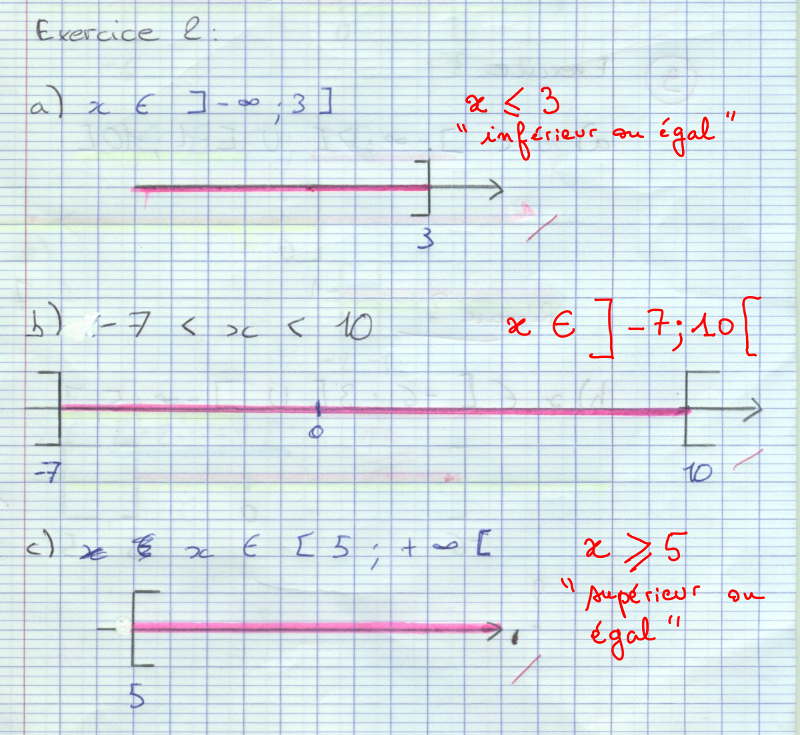 Exercice 2:
a) x ∈ ]-∞ ; 3]
x ≤ 3
"inférieur ou égal"
3
b) -7 < x < 10
x ∈ ]-7; 10[
0
-7
10
c) x ∈ [5 ; +∞[
x ⩾ 5
"supérieur ou
égal"
5